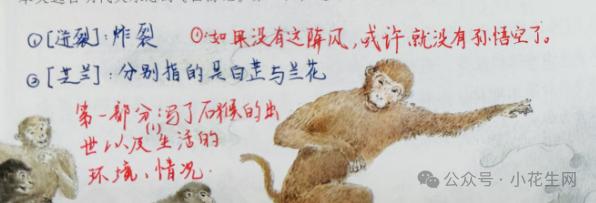 ①[迸裂]:炸裂
①如果没有这阵风,或许就没有孙悟空了。
②[芝兰]:分别指的是白芷与兰花
第一部分:写了石猴的出
世以及(1)生活的
环境、情况.
公众号·小花生网